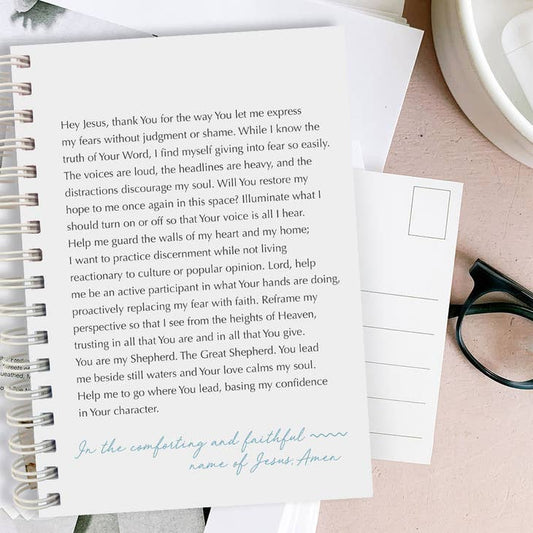 Hey Jesus, thank You for the way You let me express
my fears without judgment or shame. While I know the
truth of Your Word, I find myself giving into fear so easily.
The voices are loud, the headlines are heavy, and the
distractions discourage my soul. Will You restore my
hope to me once again in this space? Illuminate what I
should turn on or off so that Your voice is all I hear.
Help me guard the walls of my heart and my home;
I want to practice discernment while not living
reactionary to culture or popular opinion. Lord, help
me be an active participant in what Your hands are doing,
proactively replacing my fear with faith. Reframe my
perspective so that I see from the heights of Heaven,
trusting in all that You are and in all that You give.
You are my Shepherd. The Great Shepherd. You lead
me beside still waters and Your love calms my soul.
Help me to go where You lead, basing my confidence
in Your character.
In the comforting and faithful
name of Jesus, Amen